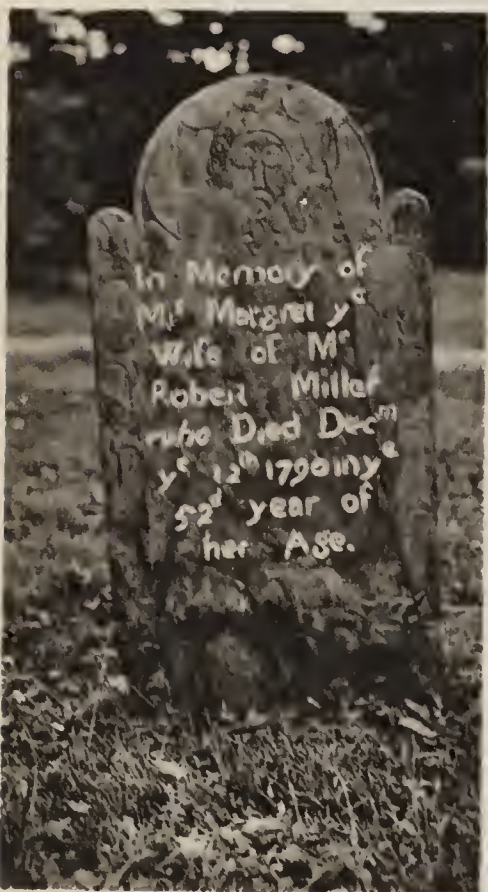 In Memory of
Mrs Margret ye
Wife of Mr
Robert Miller
who Died Decm
ye 12th 1790 in ye
52d year of
her Age.